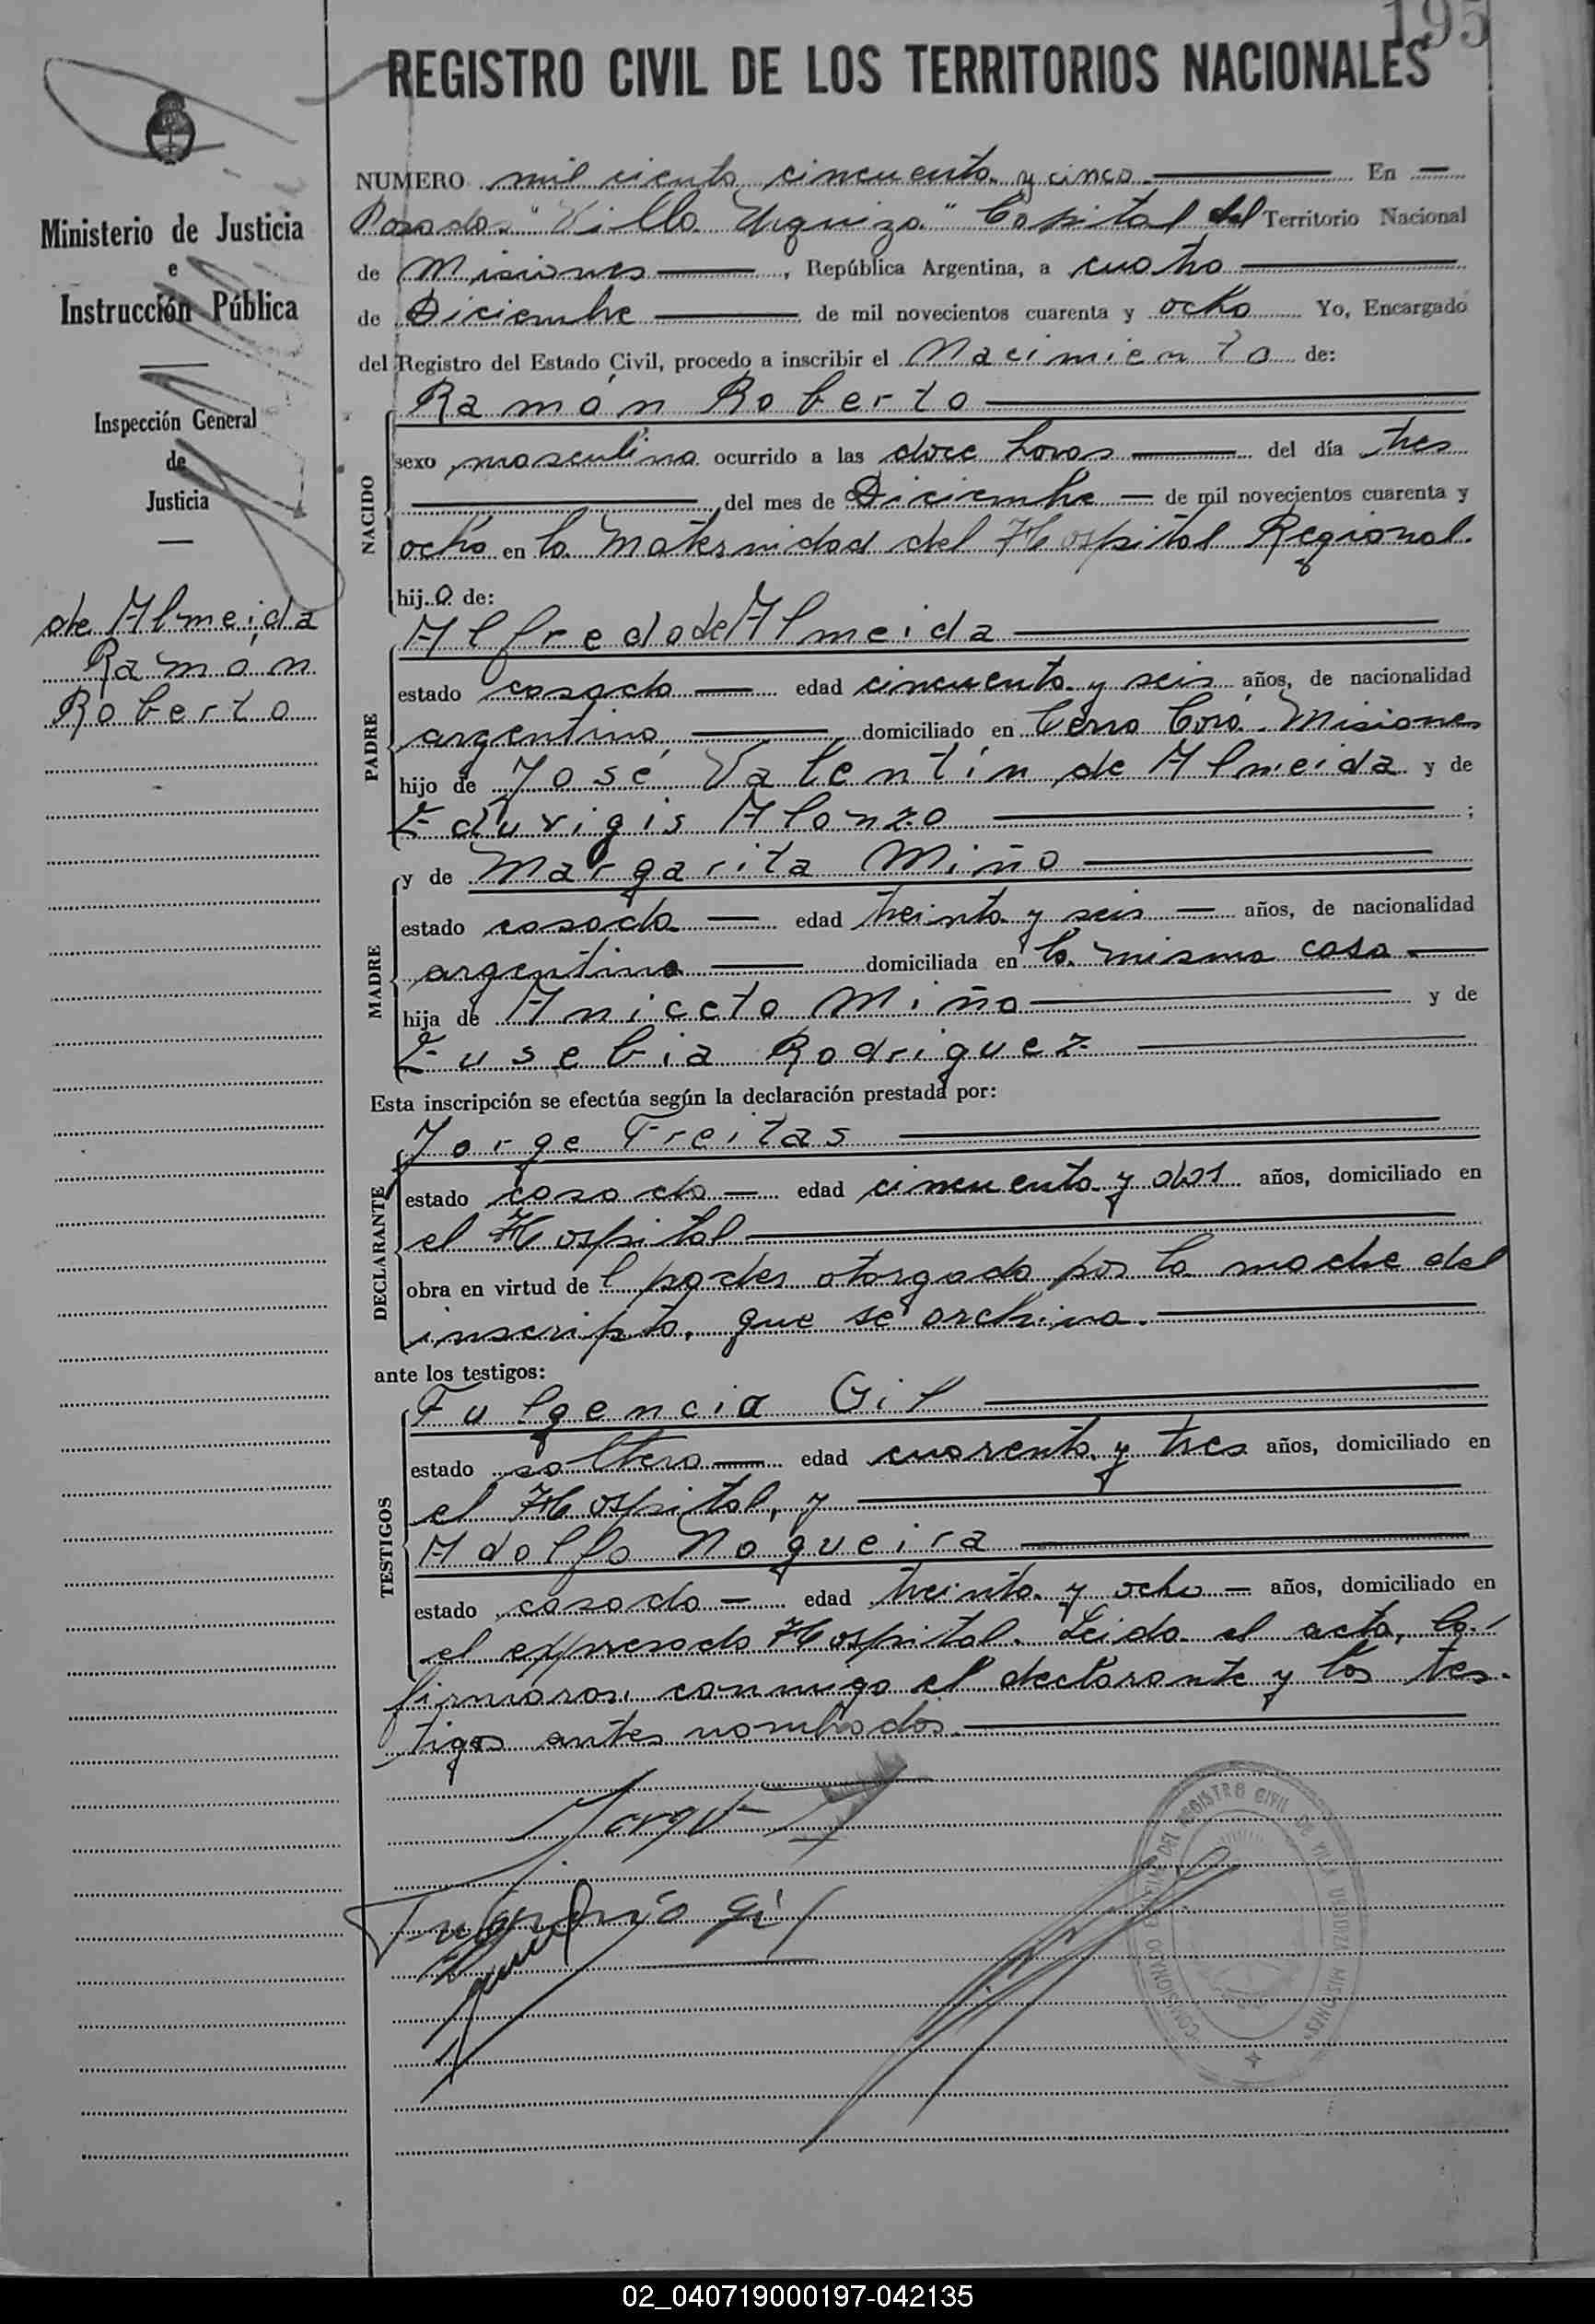 195
REGISTRO CIVIL DE LOS TERRITORIOS NACIONALES
Ministerio de Justicia
e
Instrucción Pública
Inspección General
de
Justicia
de Almeida
Ramón
Roberto
NUMERO mil ciento cincuenta y cinco En
Posadas "Villa Urquiza" Capital del Territorio Nacional
de Misiones, República Argentina, a cuatro
de Diciembre de mil novecientos cuarenta y ocho Yo, Encargado
del Registro del Estado Civil, procedo a inscribir el Nacimiento de:
NACIDO
Ramón Roberto
sexo masculino ocurrido a las doce horas del día tres
del mes de Diciembre de mil novecientos cuarenta y
ocho en la Maternidad del Hospital Regional.
hijo de:
PADRE
Alfredo de Almeida
estado casado edad cincuenta y seis años, de nacionalidad
argentino domiciliado en Cerro Corá Misiones
hijo de José Valentín de Almeida y de
Eduvigis Alonzo ;
MADRE
y de Margarita Miño
estado casada edad treinta y seis años, de nacionalidad
argentina domiciliada en la misma casa
hija de Aniceto Miño y de
Eusebia Rodriguez
Esta inscripción se efectúa según la declaración prestada por:
DECLARANTE
Jorge Freitas
estado casado edad cincuenta y dos años, domiciliado en
el Hospital
obra en virtud del poder otorgado por la madre del
inscripto, que se archiva.
ante los testigos:
TESTIGOS
Fulgencio Gil
estado soltero edad cuarenta y tres años, domiciliado en
el Hospital, y
Adolfo Nogueira
estado casado edad treinta y ocho años, domiciliado en
el expresado Hospital. Leida el acta, la
firmaron conmigo el declarante y los tes-
tigos antes nombrados.
Jorge
Fulgencio Gil
COMISIONADO ENCARGADO DEL REGISTRO CIVIL DE VILLA URQUIZA MISIONES
02_040719000197-042135